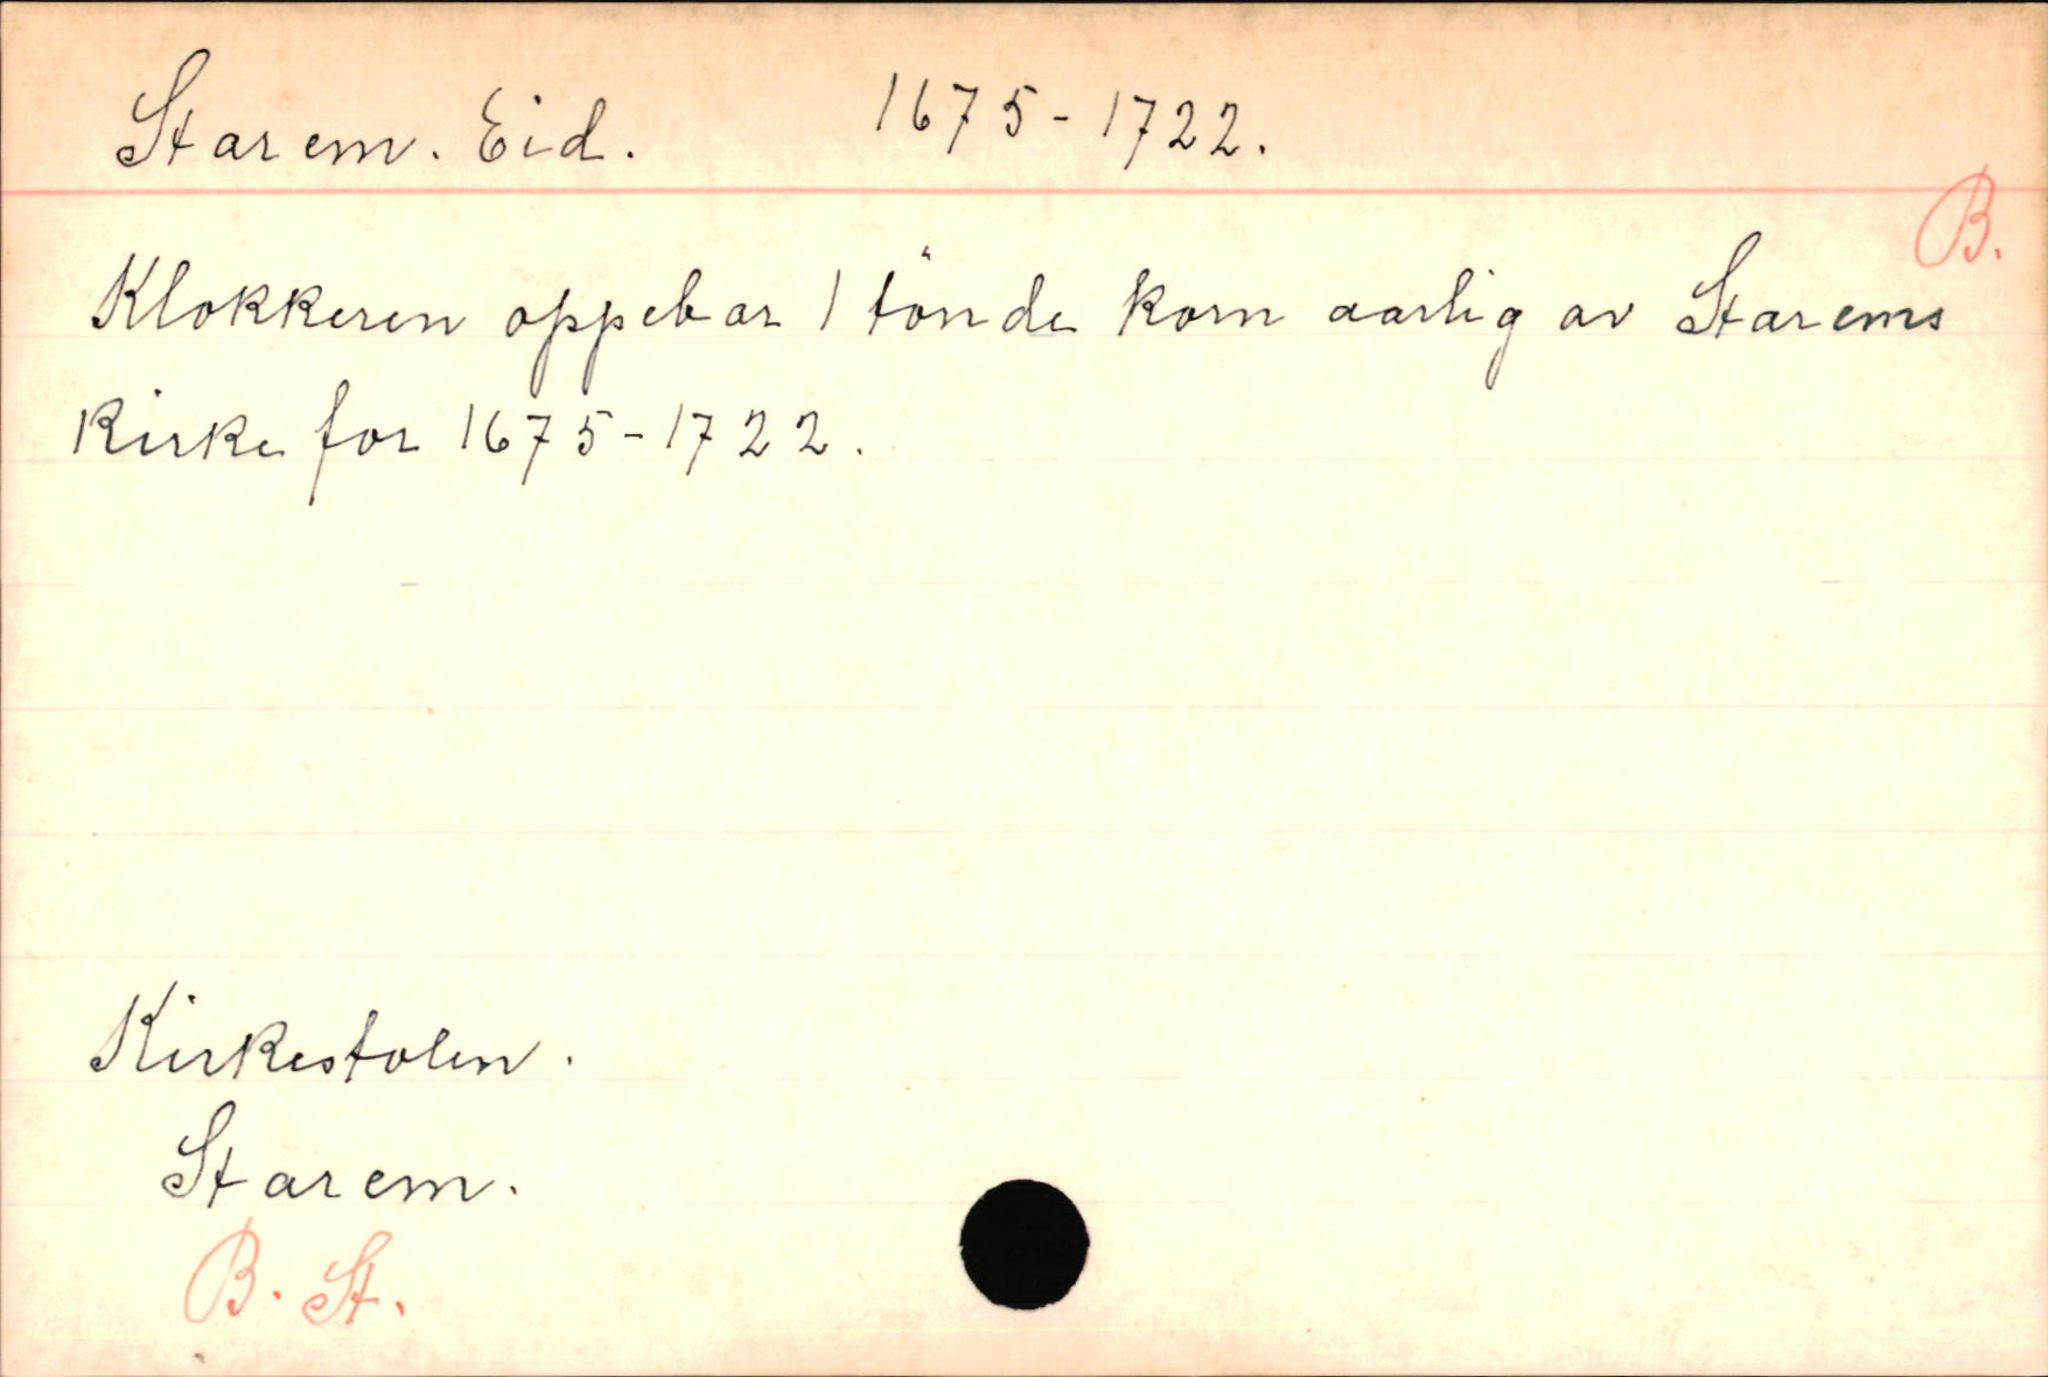 Starem. Eid. 1675-1722.
B.
Klokkeren oppebar 1 tönde korn aarlig av Starems
Kirke for 1675-1722.
Kirkestolen.
Starem.
B. St.